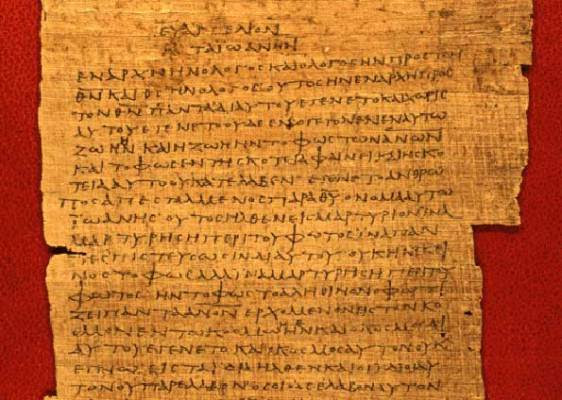 ΕΥΑΓΓΕΛΙΟΝ
ΚΑΤΑ ΙΩΑΝΝΗΝ
ΕΝΑΡΧΗΗΝΟΛΟΓΟϹΚΑΙΟΛΟΓΟϹΗΝΠΡΟϹΤΟΝ
ΘΝΚΑΙΘϹΗΝΟΛΟΓΟϹΟΥΤΟϹΗΝΕΝΑΡΧΗΠΡΟϹ
ΤΟΝΘΝΠΑΝΤΑΔΙΑΥΤΟΥΕΓΕΝΕΤΟΚΑΙΧΩΡΙϹ
ΑΥΤΟΥΕΓΕΝΕΤΟΟΥΔΕΝΟΓΕΓΟΝΕΝΕΝΑΥΤΩ
ΖΩΗΗΝΚΑΙΗΖΩΗΗΝΤΟΦΩϹΤΩΝΑΝΩΝ
ΚΑΙΤΟΦΩϹΕΝΤΗϹΚΟΤΕΙΑΦΑΙΝΕΙΚΑΙΗϹΚΟ
ΤΕΙΑΑΥΤΟΟΥΚΑΤΕΛΑΒΕΝ ΕΓΕΝΕΤΟΑΝΘΡΩ
ΠΟϹΑΠΕϹΤΑΛΜΕΝΟϹΠΑΡΑΘΥΟΝΟΜΑΑΥΤΩ
ΙΩΑΝΝΗϹ ΟΥΤΟϹΗΛΘΕΝΕΙϹΜΑΡΤΥΡΙΑΝΙΝΑ
ΜΑΡΤΥΡΗϹΗΠΕΡΙΤΟΥΦΩΤΟϹΙΝΑΠΑΝ
ΤΕϹΠΙϹΤΕΥϹΩϹΙΝΔΙΑΥΤΟΥΟΥΚΗΝΕΚΕΙ
ΝΟϹΤΟΦΩϹΑΛΛΙΝΑΜΑΡΤΥΡΗϹΗΠΕΡΙΤΟΥ
ΦΩΤΟϹ ΗΝΤΟΦΩϹΤΟΑΛΗΘΙΝΟΝΟΦΩΤΙ
ΖΕΙΠΑΝΤΑΑΝΟΝΕΡΧΟΜΕΝΟΝΕΙϹΤΟΝΚΟ
ϹΜΟΝΕΝΤΩΚΟϹΜΩΗΝΚΑΙΟΚΟϹΜΟϹΔΙ
ΑΥΤΟΥΕΓΕΝΕΤΟΚΑΙΟΚΟϹΜΟϹΑΥΤΟΝΟΥΚ
ΕΓΝΩΕΙϹΤΑΙΔΙΑΗΛΘΕΝΚΑΙΟΙΙΔΙΟΙΑΥ
ΤΟΝΟΥΠΑΡΕΛΑΒΟΝΟϹΟΙΔΕΕΛΑΒΟΝΑΥΤΟΝ